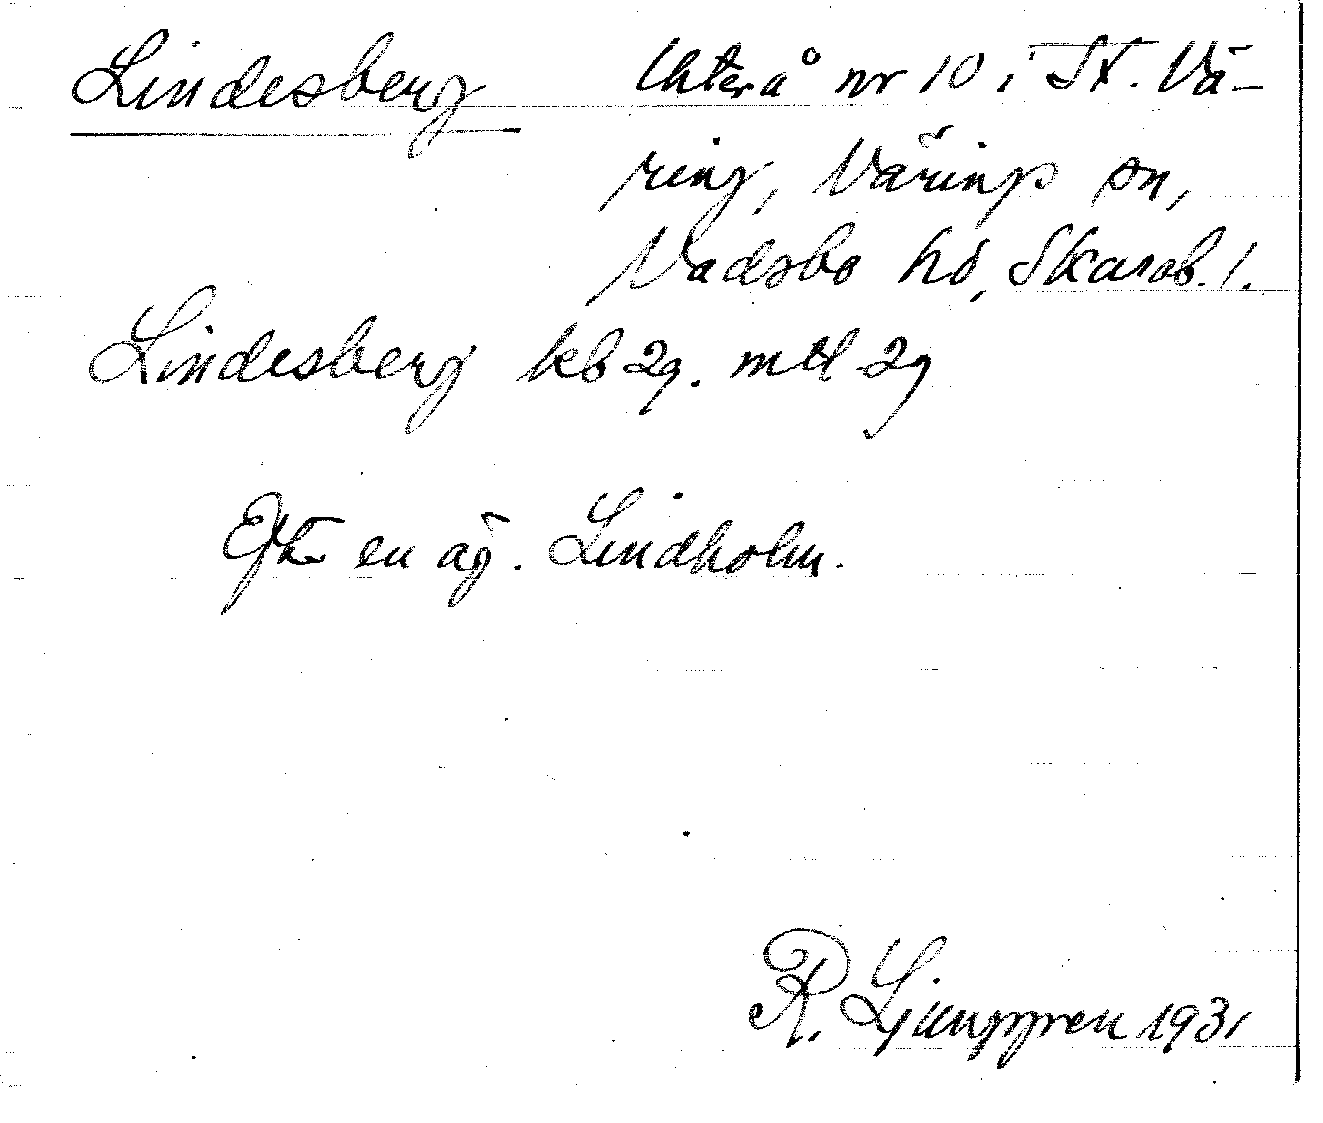 Lindesberg Utterå nr 10 i St. Vä-
ring, Värings sn,
Vadsbo hd, Skarab. l.
Lindesberg kb 29. mtl 29
Efter en äg. Lindholm.
R. Ljunggren 1931